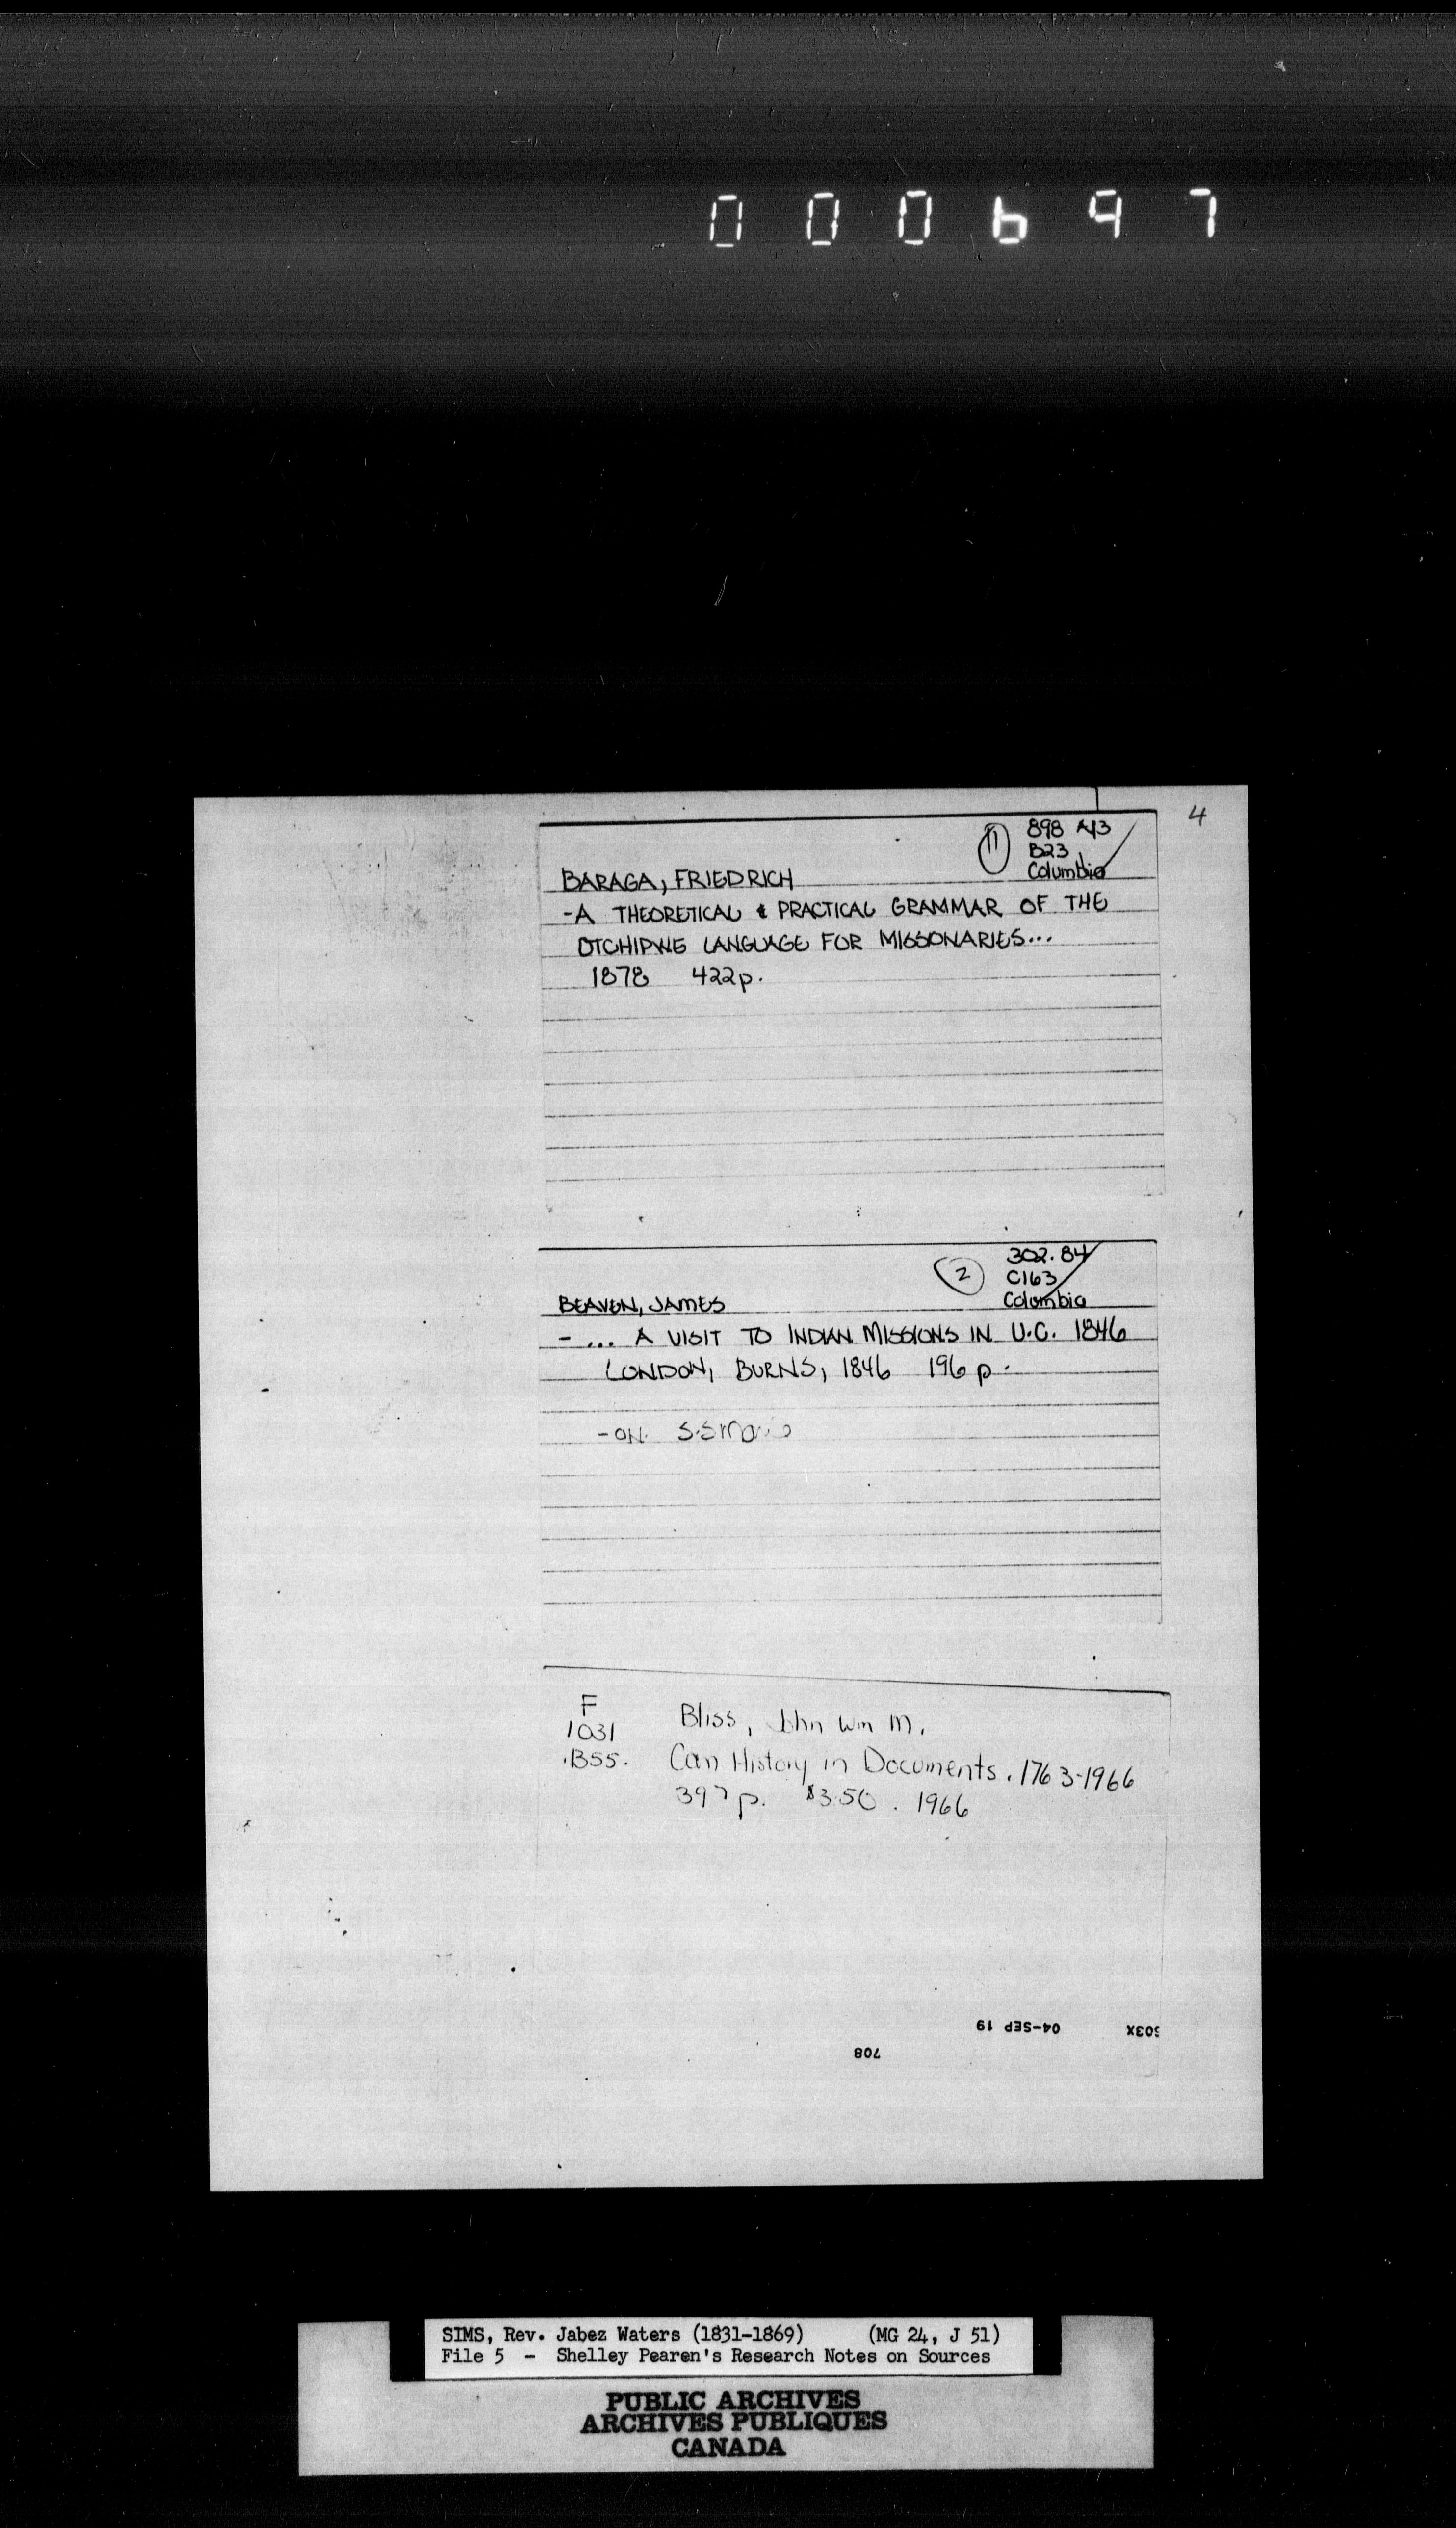 000697
4
11
898 A13
B23
Columbia
BARAGA, FRIEDRICH
-A THEORETICAL & PRACTICAL GRAMMAR OF THE
OTCHIPWE LANGUAGE FOR MISSONARIES...
1878 422p.
2
302.84
C163
Columbia
BEAVEN, JAMES
- ... A VISIT TO INDIAN MISSIONS IN U.C. 1846
LONDON, BURNS, 1846 196 p.
-ON.
F
1031
.B55.
Bliss, John Wm M.
Can History in Documents. 1763-1966
397 p. $3.50. 1966
603X 04-SEP 19
708
SIMS, Rev. Jabez Waters (1831-1869) (MG 24, J 51)
File 5 - Shelley Pearen's Research Notes on Sources
PUBLIC ARCHIVES
ARCHIVES PUBLIQUES
CANADA